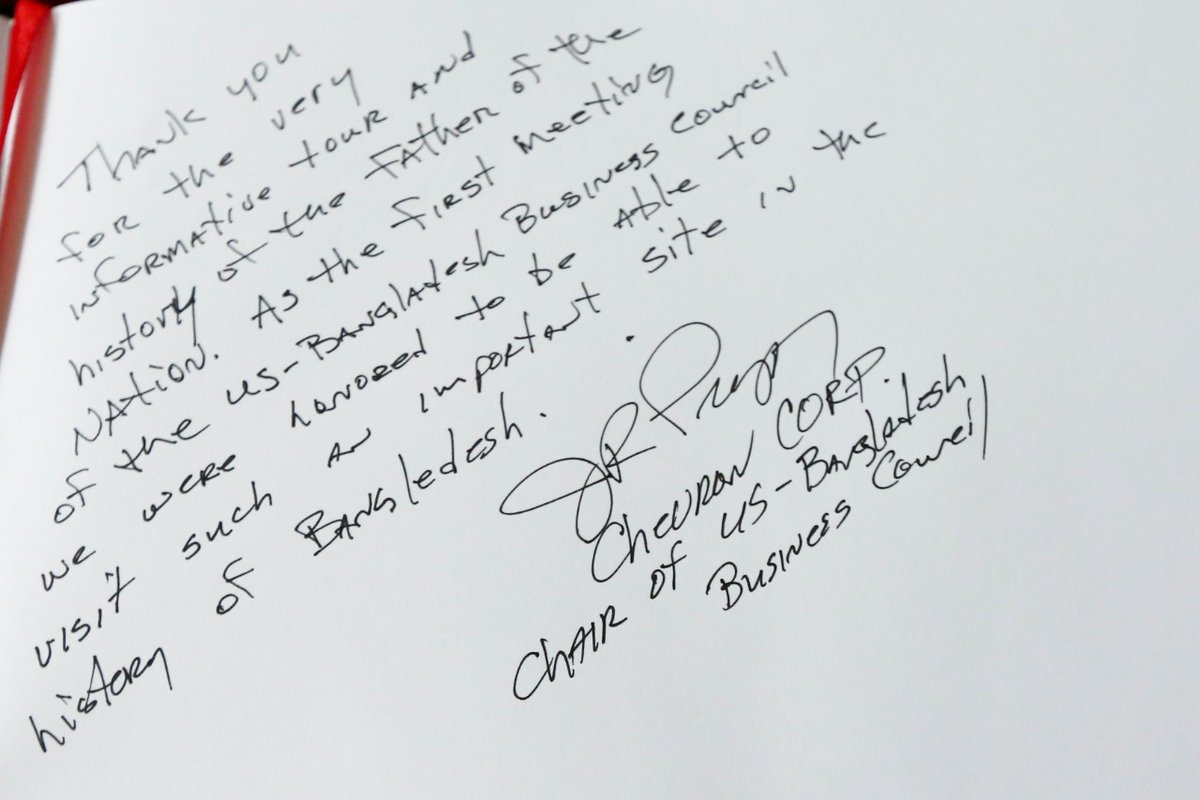 Thank you
for the very
informative tour and
history of the Father of the
Nation. As the first meeting
of the US-Bangladesh Business Council
we were honored to be able to
visit such an important site in the
history of Bangledesh.
JR Pryor
Chevron Corp.
Chair of US-Bangladesh
Business Council